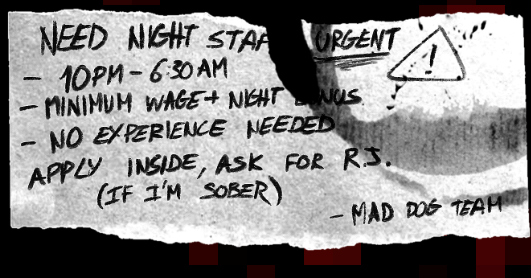 NEED NIGHT STAF URGENT
- 10PM - 6:30AM
- MINIMUM WAGE + NIGHT BONUS
- NO EXPERIENCE NEEDED
APPLY INSIDE, ASK FOR R.J.
(IF I'M SOBER)
- MAD DOG TEAM
!